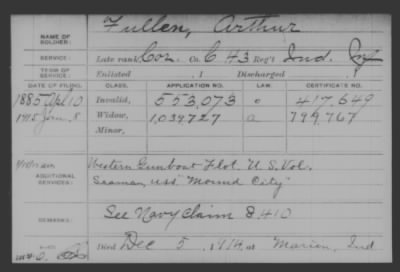 NAME OF SOLDIER: Fullen, Arthur
SERVICE: Late rank Cor. Co. C 43 Reg't Ind. Inf
TERM OF SERVICE: Enlisted , 1 Discharged , 1
DATE OF FILING. CLASS. APPLICATION NO. LAW. CERTIFICATE NO.
1885 Apl 10 Invalid, 553,073 417,649
1915 Jan. 8 Widow, 1,039,727 a 799,767
Minor,
ADDITIONAL SERVICES: Western Gunboat Flot. U.S. Vol.
Seaman, USS "Mound City"
REMARKS: See Navy Claim 8,410
Died Dec 5, 1914, at Marion, Ind